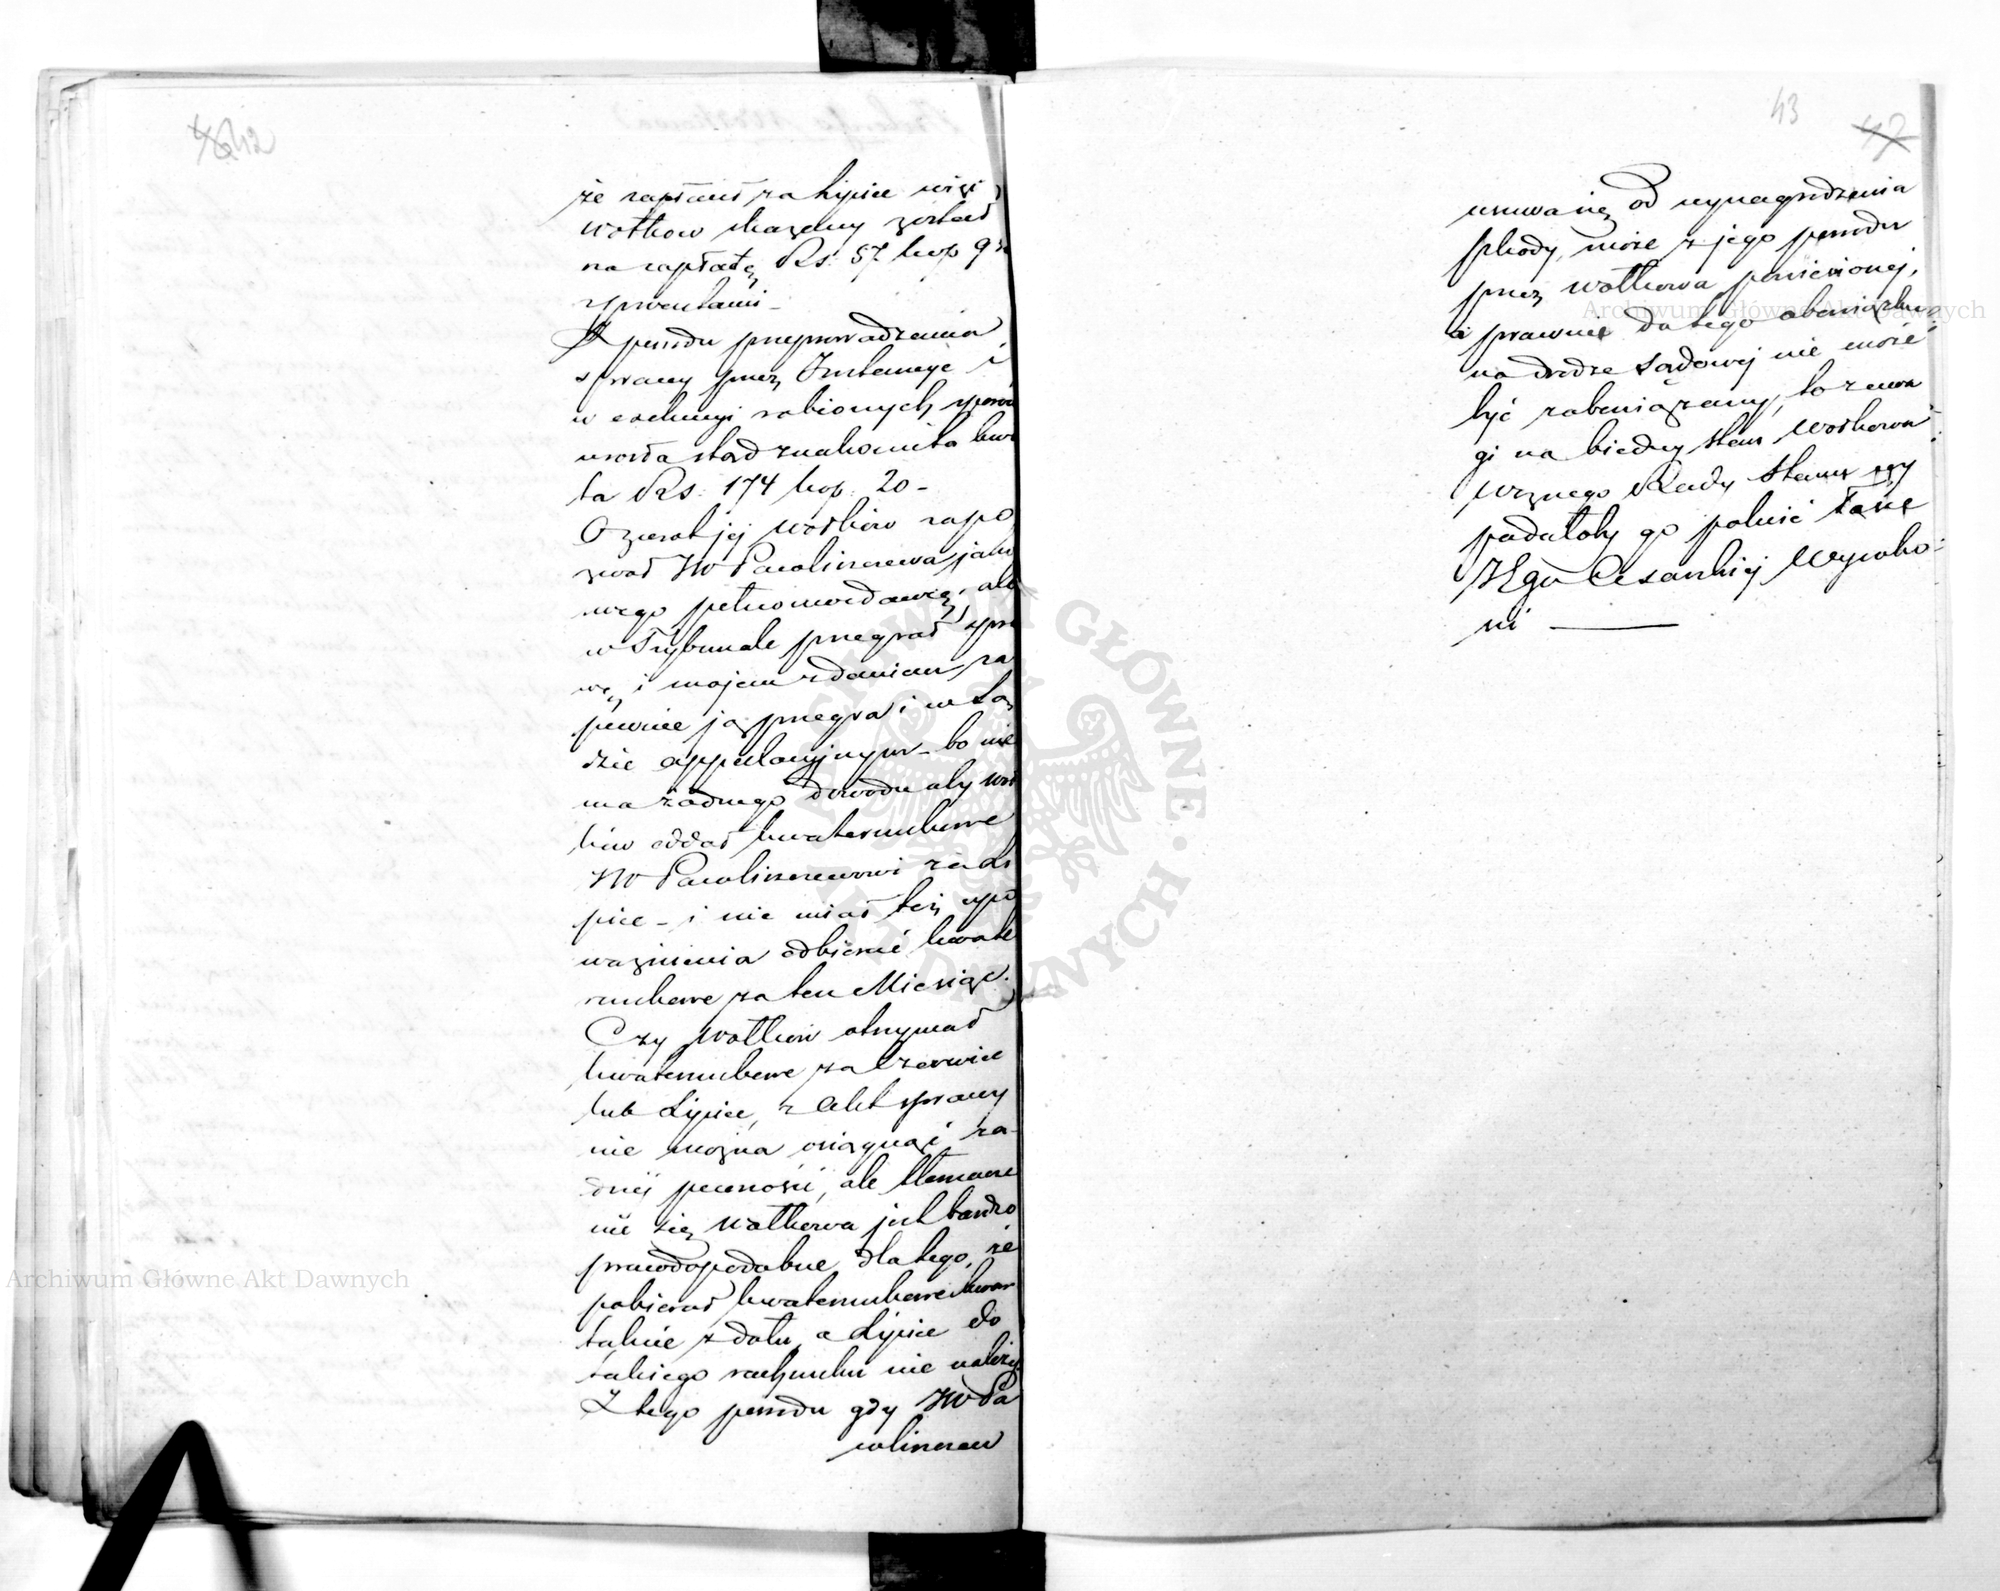 42
że zapłacił za Lipiec więc
Wołkow skazany został
na zapłatę Rs: 57 kop 9
z procentami –
Z powodu przeprowadzenia
sprawy przez Instancye i
w exekucyi robionych sporów
urosła stąd znakomita kwo
ta Rs: 174 kop: 20 –
O zwrot jej Wołkow zapo
zwał JW Pawliszczewa jako
swego pełnomocdawcę, ale
w Trybunale przegrał spra
wę, i mojem zdaniem za
pewnie ją przegra i w Są
dzie appelacyjnym – bo nie
ma żadnego dowodu aby Woł
kow oddał kwaterunkowe
JW Pawliszczewowi za Li
piec – i nie miał też upo
ważnienia odbierać kwate
runkowe za ten Miesiąc.
Czy Wołkow otrzymał
kwaterunkowe za Czerwiec
lub Lipiec, z Akt sprawy
nie można osiągnąć ża
dnej pewności, ale tłomacze
nie się Wołkowa jest bardzo
prawdopodobne dla tego, że
pobierał kwaterunkowe kwar
talnie z dołu, a Lipiec do
takiego rachunku nie należy
Z tego powodu gdy JW Pa
wliszczew
43
usuwa się od wynagrodzenia
szkody, może z jego powodu
przez Wołkowa poniesionej,
a prawnie do tego obowiązku
na drodze sądowej nie może
być zobowiązany, to z uwa
gi na biedny stan Wołkowa
Radcy Stanu wy
padałoby go polecić łasce
JEgo Cesarskiej Wysoko:
ści
Archiwum Główne Akt Dawnych
Archiwum Główne Akt Dawnych
ARCHIWUM GŁÓWNE AKT DAWNYCH